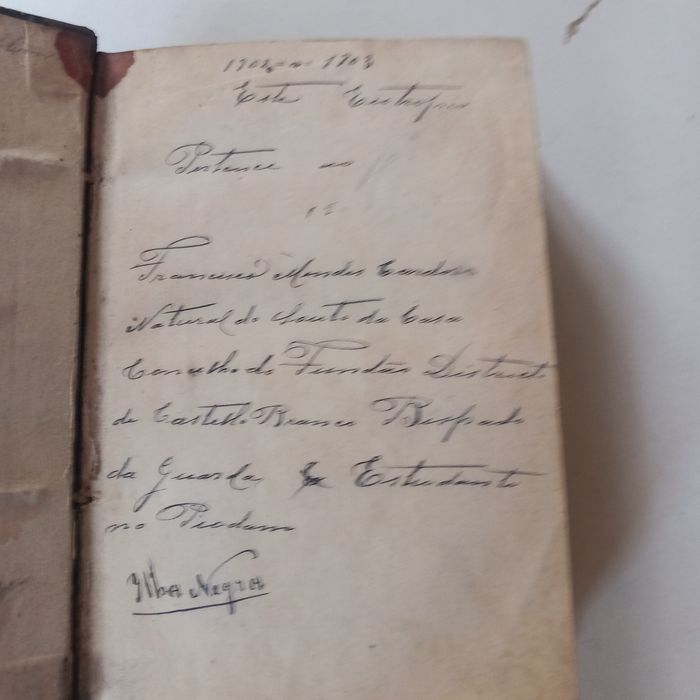 1902 a 1903
Este Eutropio
Pertence ao
Francisco Mendes Cardoso
Natural do Souto da Casa
Concelho do Fundão Districto
de Castello Branco Bispado
da Guarda Estudante
no Piodam
Negra